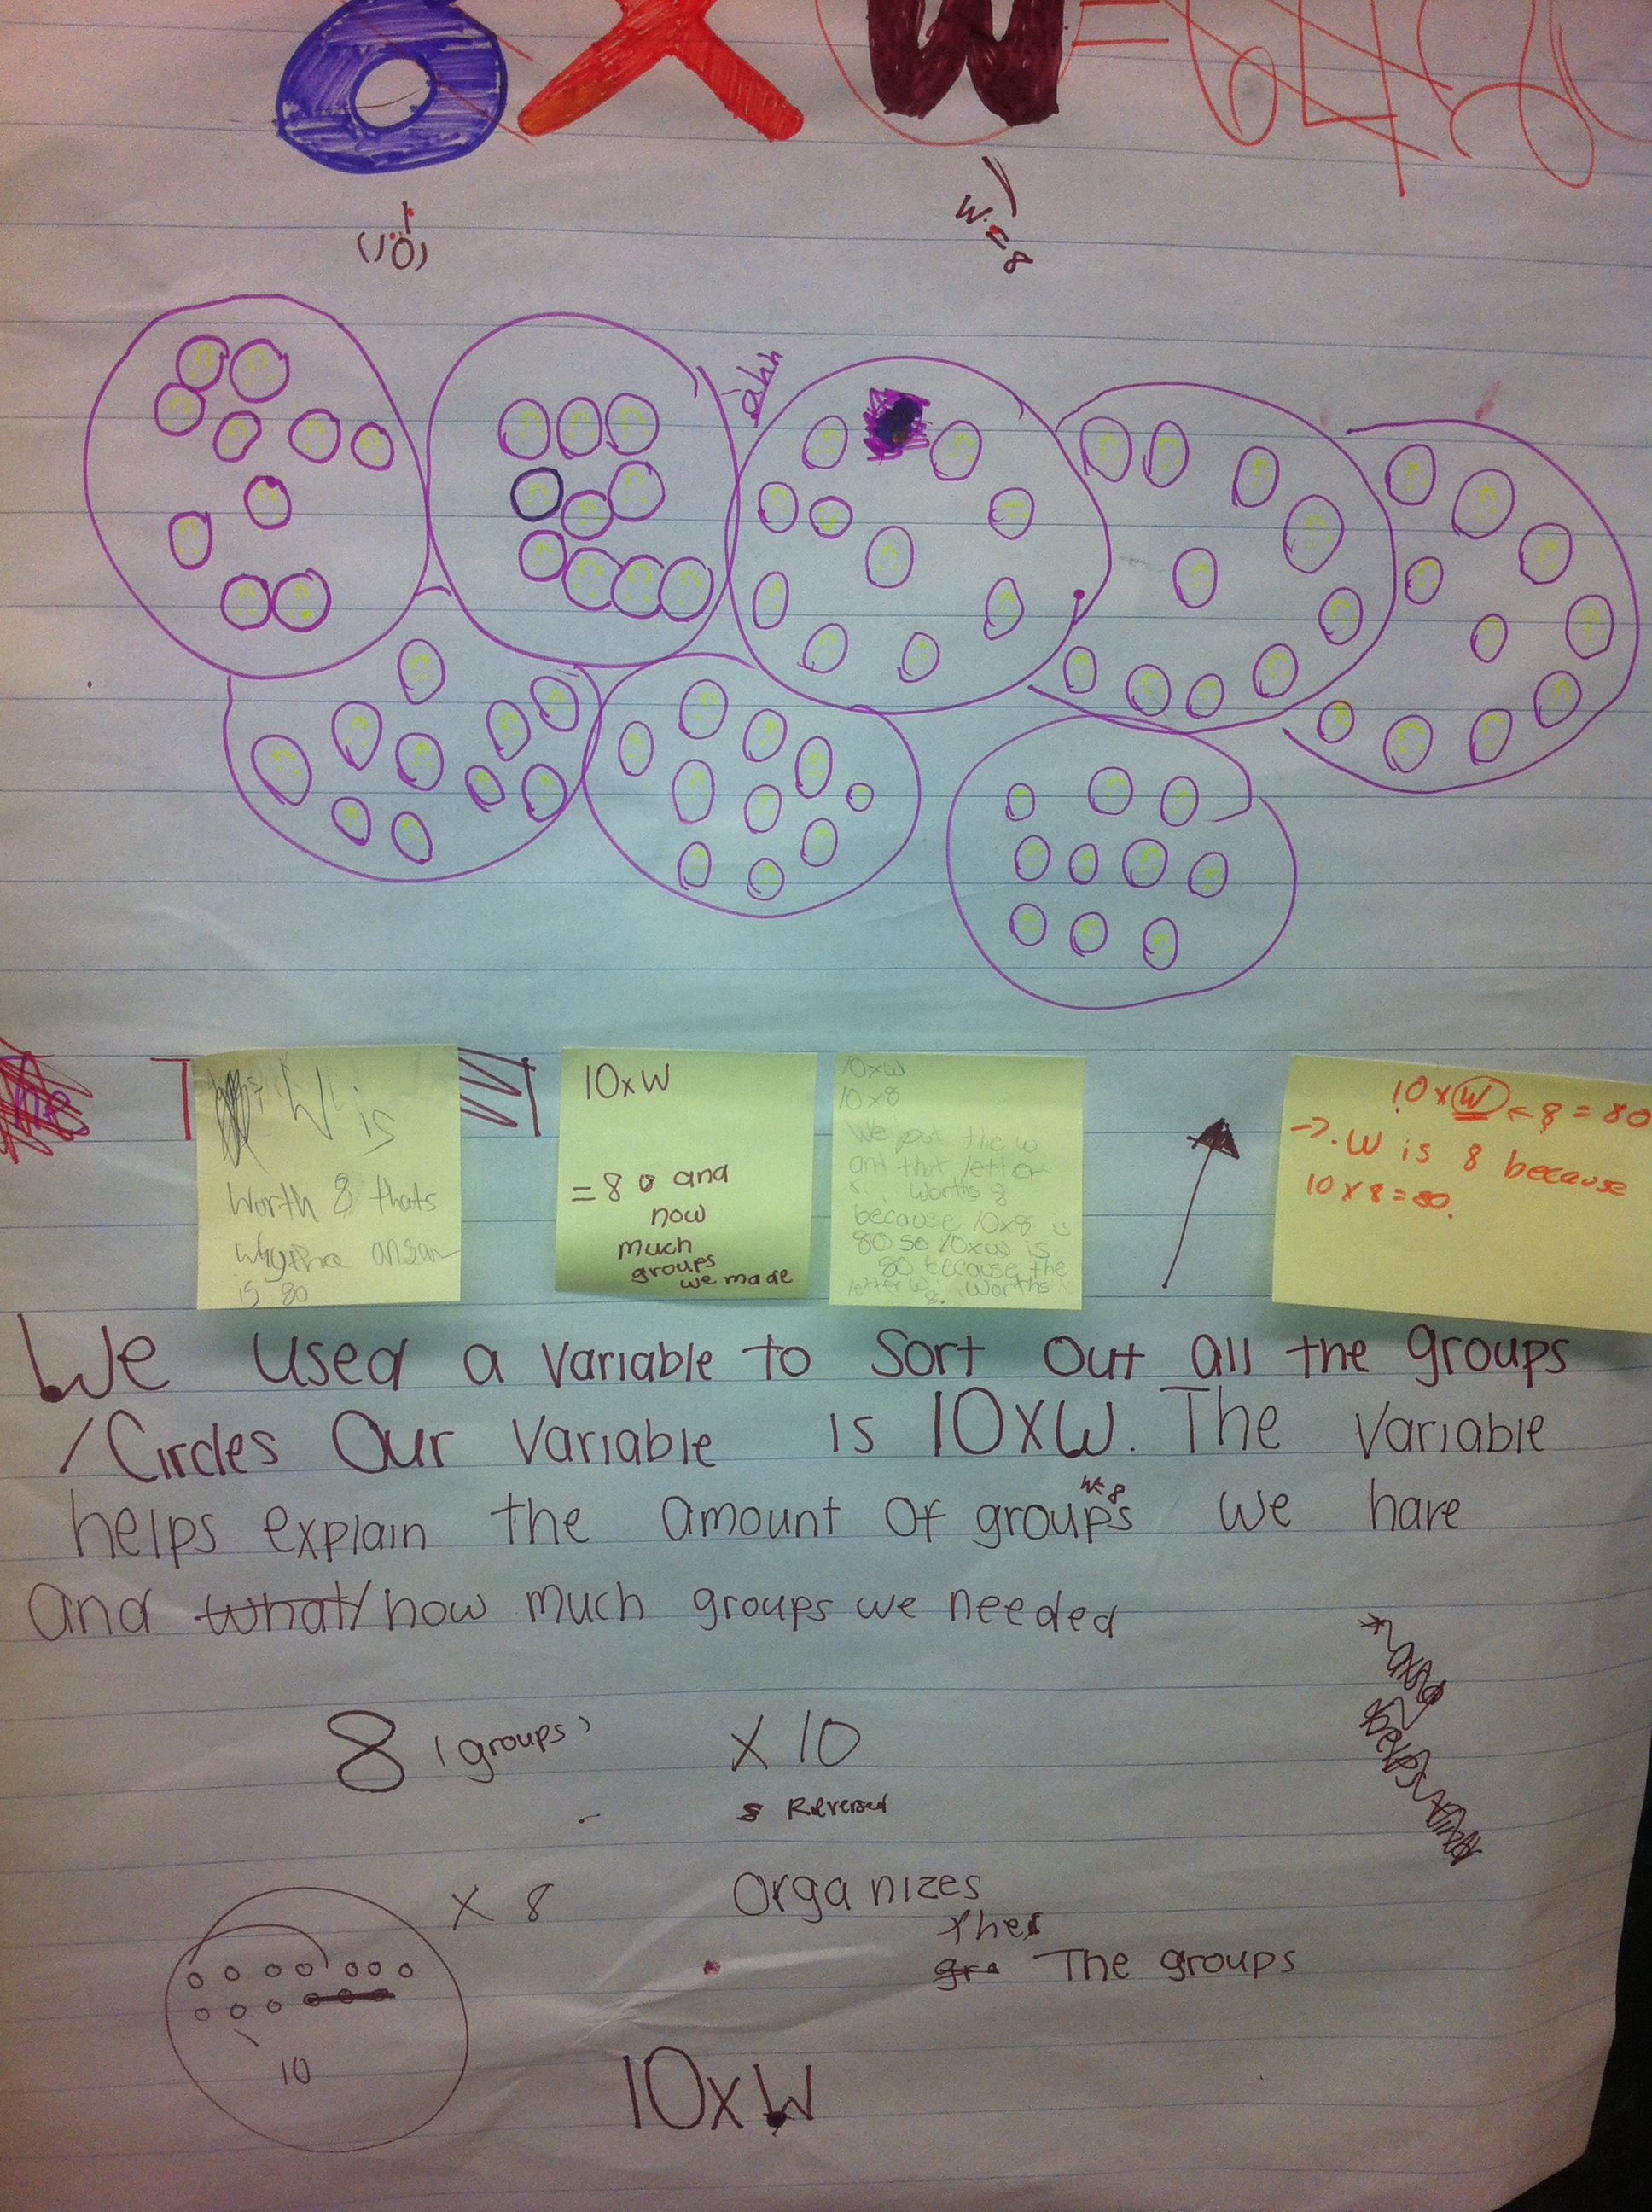 0 x W = 640
(10)
W = 8
ahh
W is
Worth 8 thats
why the
is 80
10xW
= 80 and
how
much
groups
we made
10xw
10x8
We put the w
and that letter
is worths 8
because 10x8 is
80 so 10xw is
80 because the
letter w worths
8.
10 x W ← 8 = 80
→. W is 8 because
10 x 8 = 80.
We used a variable to Sort Out all the groups
/Circles Our Variable is 10xW. The Variable
W=8
helps explain the amount Of groups we have
and what/how much groups we needed
8 (groups) x 10
Reversed
x 8
Organizes
The groups
10
10xW